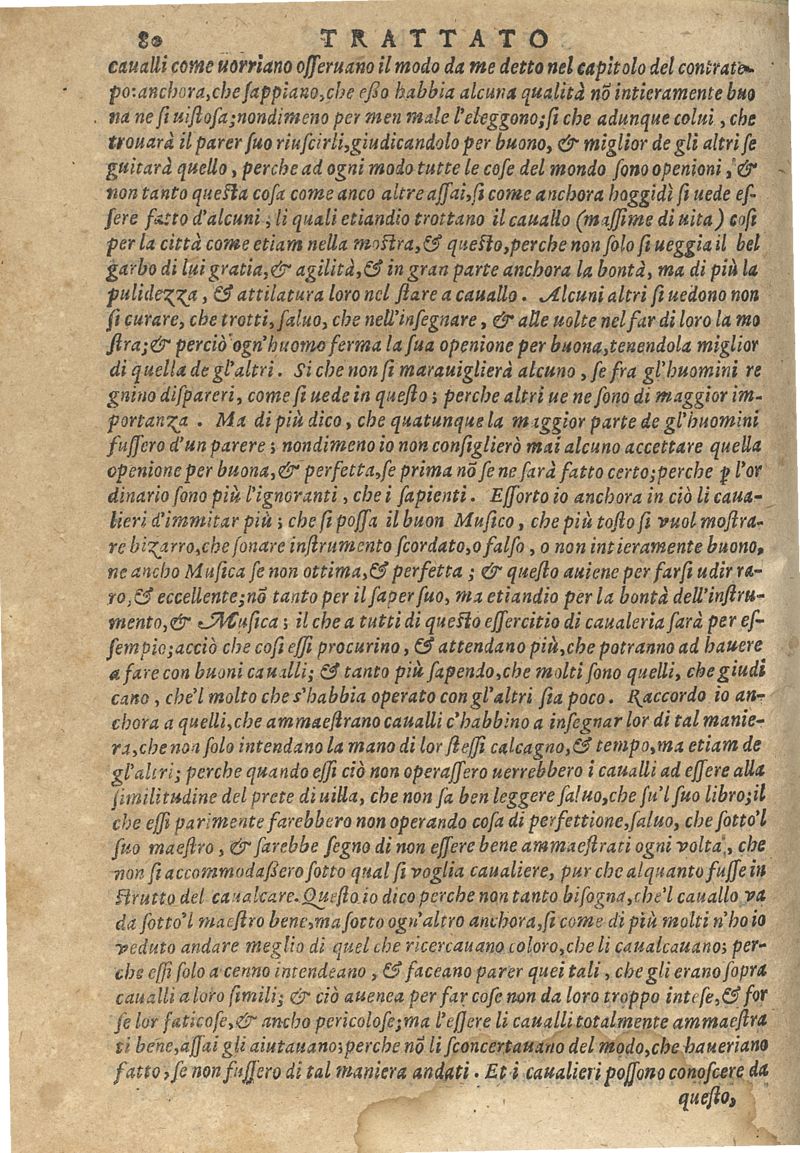 80 TRATTATO
caualli come uorriano osseruano il modo da me detto nel capitolo del contrate-
po: anchora, che sappiano, che eßo habbia alcuna qualità nõ intieramente buo
na ne si uistosa; nondimeno per men male l'eleggono; si che adunque colui, che
trouarà il parer suo riuscirli, giudicandolo per buono, & miglior de gli altri se
guitarà quello, perche ad ogni modo tutte le cose del mondo sono openioni, &
non tanto questa cosa come anco altre assai, si come anchora hoggidì si uede es-
sere fatto d'alcuni; li quali etiandio trottano il cauallo (massime di uita) cosi
per la città come etiam nella mostra, & questo, perche non solo si ueggia il bel
garbo di lui gratia, & agilità, & in gran parte anchora la bontà, ma di più la
pulidezza, & attilatura loro nel stare a cauallo. Alcuni altri si uedono non
si curare, che trotti, saluo, che nell'insegnare, & alle uolte nel far di loro la mo
stra; & perciò ogn'huomo ferma la sua openione per buona, tenendola miglior
di quella de gl'altri. Si che non si marauiglierà alcuno, se fra gl'huomini re
gnino dispareri, come si uede in questo; perche altri ue ne sono di maggior im-
portanza. Ma di più dico, che quatunque la maggior parte de gl'huomini
fussero d'un parere; nondimeno io non consiglierò mai alcuno accettare quella
openione per buona, & perfetta, se prima nõ se ne sarà fatto certo; perche ꝑ l'or
dinario sono più l'ignoranti, che i sapienti. Essorto io anchora in ciò li caua-
lieri d'immitar più; che si possa il buon Musico, che più tosto si vuol mostra-
re bizarro, che sonare instrumento scordato, o falso, o non intieramente buono,
ne ancho Musica se non ottima, & perfetta; & questo auiene per farsi udir ra-
ro, & eccellente; nõ tanto per il saper suo, ma etiandio per la bontà dell'instru-
mento, & Musica; il che a tutti di questo essercitio di caualeria sarà per es-
sempio; acciò che cosi essi procurino, & attendano più, che potranno ad hauere
a fare con buoni caualli; & tanto più sapendo, che molti sono quelli, che giudi
cano, che'l molto che s'habbia operato con gl'altri sia poco. Raccordo io an-
chora a quelli, che ammaestrano caualli c'habbino a insegnar lor di tal manie-
ra, che non solo intendano la mano di lor stessi calcagno, & tempo, ma etiam de
gl'altri; perche quando essi ciò non operassero uerrebbero i caualli ad essere alla
similitudine del prete di uilla, che non sa ben leggere saluo, che su'l suo libro; il
che essi parimente farebbero non operando cosa di perfettione, saluo, che sotto'l
suo maestro, & sarebbe segno di non essere bene ammaestrati ogni volta, che
non si accommodaßero sotto qual si voglia caualiere, pur che alquanto fusse in
strutto del caualcare. Questo io dico perche non tanto bisogna, che'l cauallo va
da sotto'l maestro bene, ma sotto ogn'altro anchora, si come di più molti n'ho io
veduto andare meglio di quel che ricercauano coloro, che li caualcauano; per-
che essi solo a cenno intendeano, & faceano parer quei tali, che gli erano sopra
caualli a loro simili; & ciò auenea per far cose non da loro troppo intese, & for
se lor faticose, & ancho pericolose; ma l'essere li caualli totalmente ammaestra
ti bene, assai gli aiutauano; perche nõ li sconcertauano del modo, che haueriano
fatto, se non fussero di tal maniera andati. Et i caualieri possono conoscere da
questo,